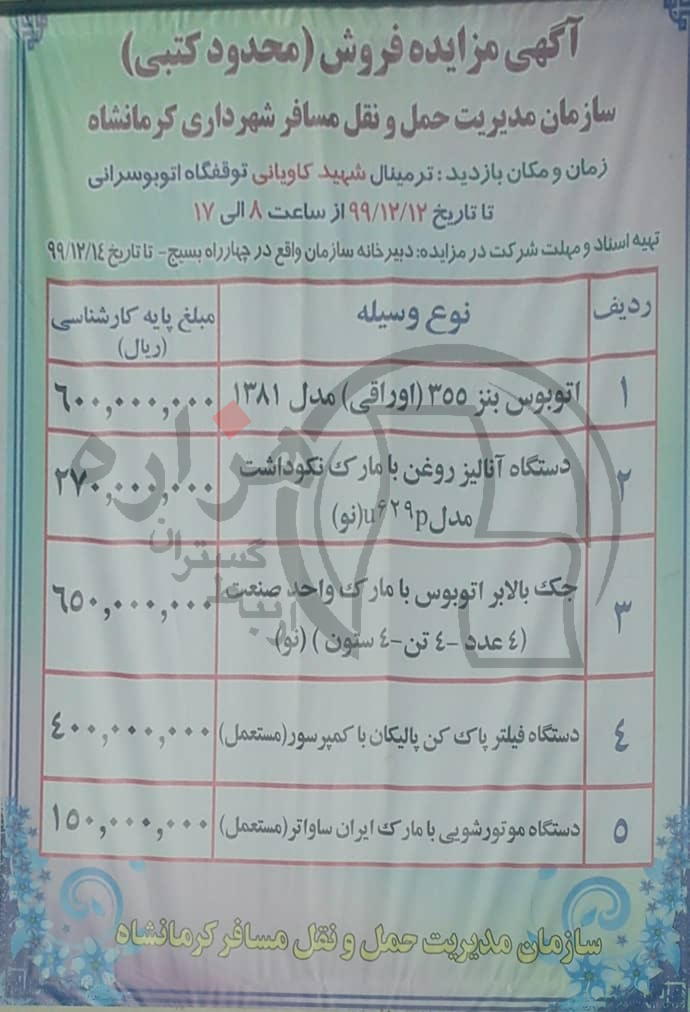 آگهی مزایده فروش (محدود کتبی)
سازمان مدیریت حمل و نقل مسافر شهرداری کرمانشاه
زمان و مکان بازدید : ترمینال شهید کاویانی توقفگاه اتوبوسرانی
تا تاریخ ۹۹/۱۲/۱۲ از ساعت ۸ الی ۱۷
تهیه اسناد و مهلت شرکت در مزایده: دبیرخانه سازمان واقع در چهارراه بسیج- تا تاریخ ۹۹/۱۲/۱۴
ردیف نوع وسیله مبلغ پایه کارشناسی
(ریال)
۱ اتوبوس بنز ۳۵۵ (اوراقی) مدل ۱۳۸۱ ۶۰۰,۰۰۰,۰۰۰
۲ دستگاه آنالیز روغن با مارک نکوداشت ۲۷۰,۰۰۰,۰۰۰
مدل u۶۲۹p (نو)
۳ جک بالابر اتوبوس با مارک واحد صنعت ۶۵۰,۰۰۰,۰۰۰
(۴ عدد -۴ تن-۴ ستون ) (نو)
۴ دستگاه فیلتر پاک کن پالیکان با کمپرسور(مستعمل) ۴۰۰,۰۰۰,۰۰۰
۵ دستگاه موتورشویی با مارک ایران ساواتر(مستعمل) ۱۵۰,۰۰۰,۰۰۰
سازمان مدیریت حمل و نقل مسافر کرمانشاه
هزاره
گستران
ارتباط